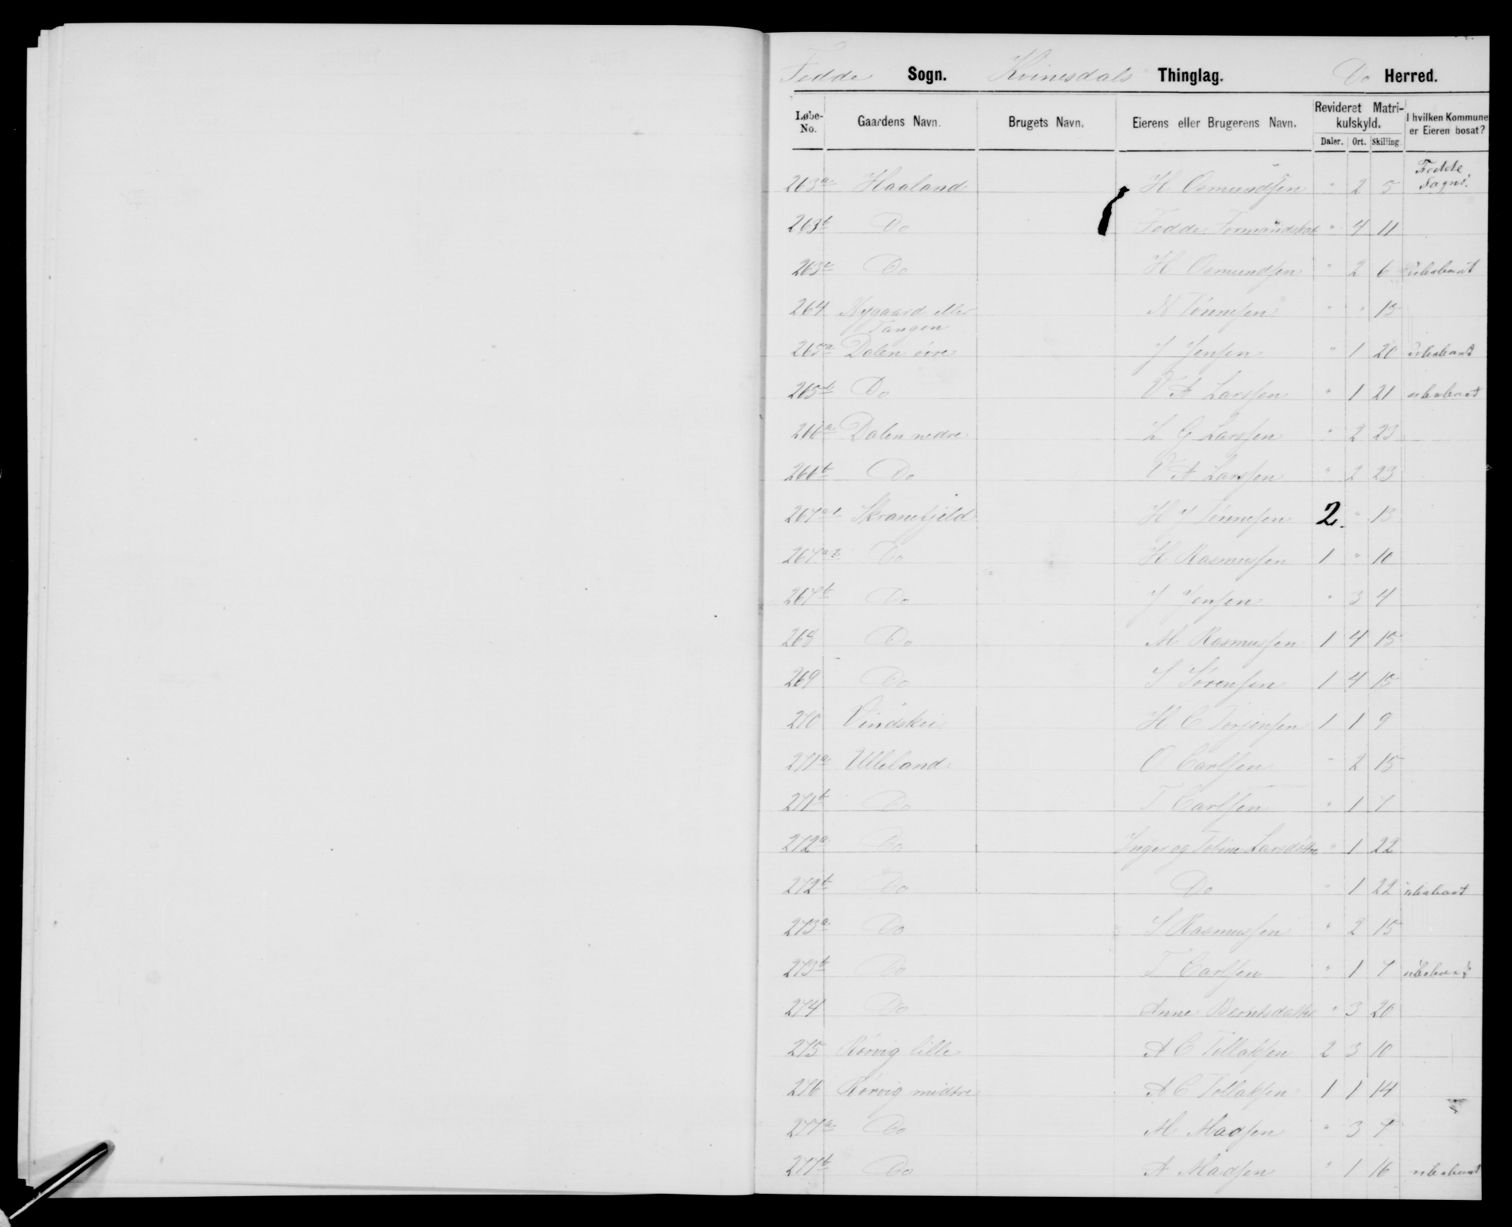 Fedde Sogn. Kvinesdals Thinglag. Do Herred.
Løbe-No. Gaardens Navn. Brugets Navn. Eierens eller Brugerens Navn. Revideret Matrikulskyld. I hvilken Kommune er Eieren bosat?
Daler. Ort. Skilling
263a Haaland H Osmundsen " 2 5 Fedde Sogns.
263b Do Fedde Formandskab " 4 11
263c Do H Osmundsen " 2 6 ubebant
264 Nygaard eller Tangen N Tønnesen " " 15
265a Dalen øvre J Jensen " 1 20 ubebant
265b Do V A Larssen " 1 21 ubebant
266a Dalen nedre L G Larssen " 2 23
266b Do V A Larssen " 2 23
267a1 Skranefjeld H J Tønnesen 2 " 13
267a2 Do H Rasmussen 1 " 10
267b Do J Jensen " 3 4
268 Do M Rasmussen 1 4 15
269 Do S Sørensen 1 4 15
270 Vindskei H C Torjensen 1 1 9
271a Ulleland O Carlsen " 2 15
271b Do T Carlsen " 1 7
272a Do Inger og Toline Larsdøttre " 1 22
272b Do Do " 1 22 ubebant
273a Do S Rasmussen " 2 15
273b Do T Carlsen " 1 7 ubebant
274 Do Anne Berntsdatter " 3 20
275 Rørvig lille A C Tollaksen 2 3 10
276 Rørvig midtre A C Tollaksen 1 1 14
277a Do M Madsen " 3 7
277b Do A Madsen " 1 16 ubebant